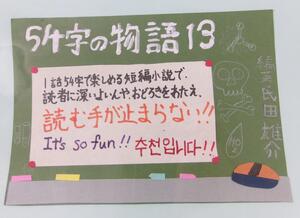 54字の物語13
1話54字で楽しめる短編小説で、
読者に深いよいんや、おどろきをあたえ、
読む手が止まらない!!
It's so fun!! 추천입니다!!
編著 氏田雄介